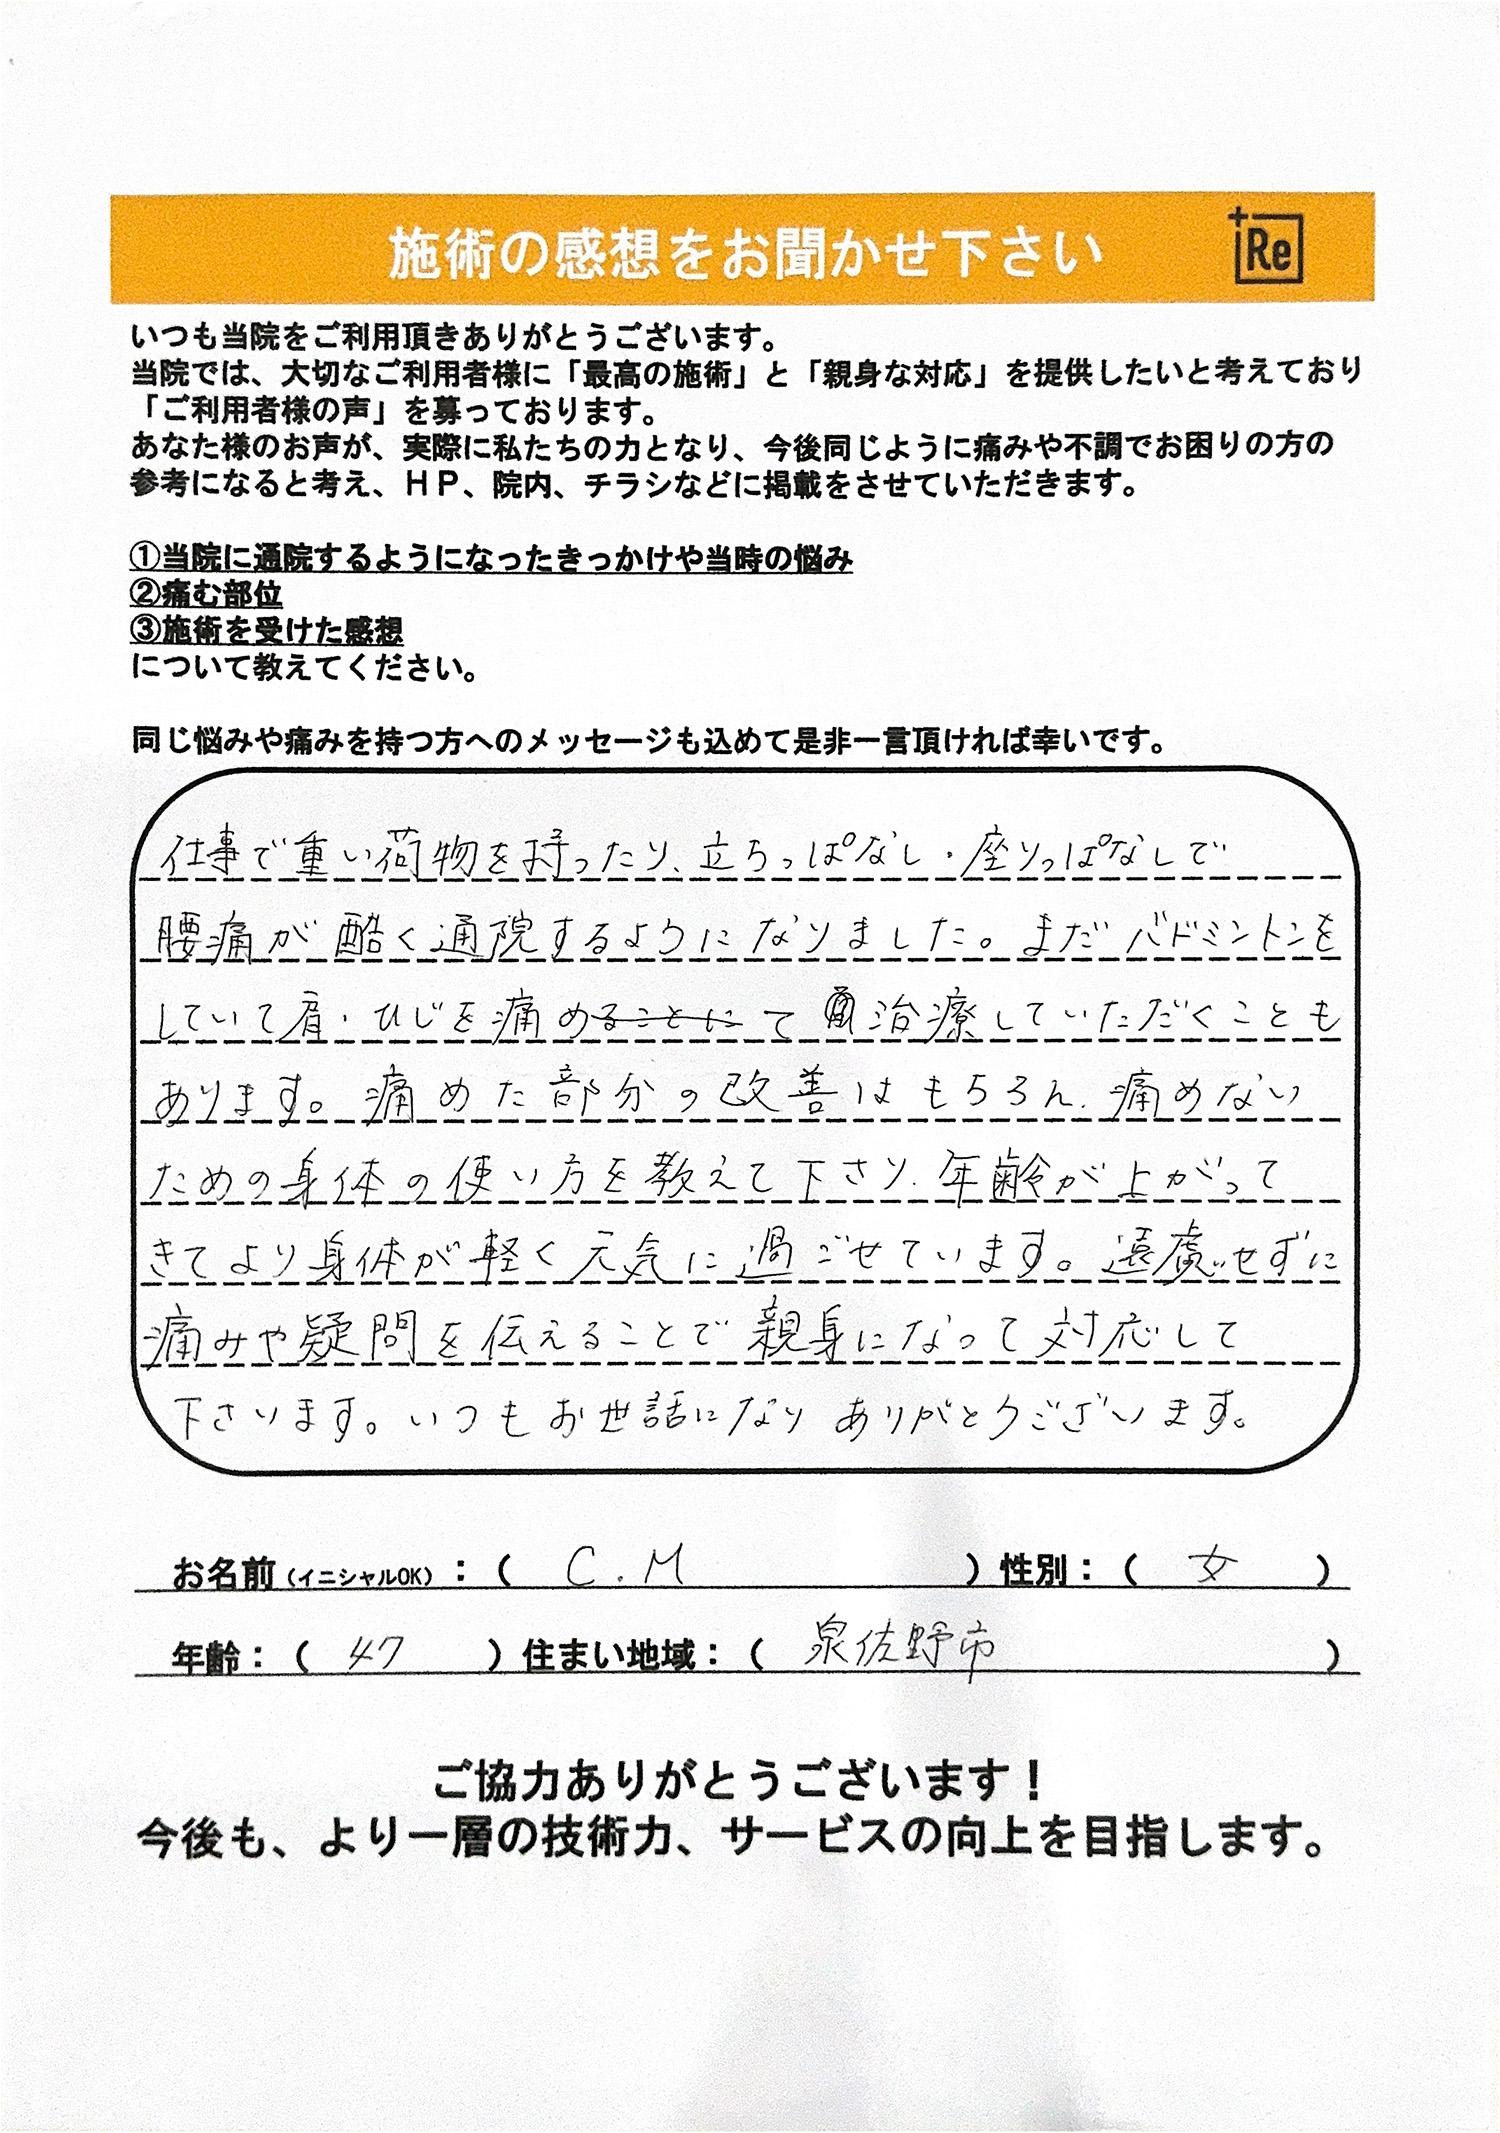 施術の感想をお聞かせ下さい
+Re
いつも当院をご利用頂きありがとうございます。
当院では、大切なご利用者様に「最高の施術」と「親身な対応」を提供したいと考えており
「ご利用者様の声」を募っております。
あなた様のお声が、実際に私たちの力となり、今後同じように痛みや不調でお困りの方の
参考になると考え、ＨＰ、院内、チラシなどに掲載をさせていただきます。
①当院に通院するようになったきっかけや当時の悩み
②痛む部位
③施術を受けた感想
について教えてください。
同じ悩みや痛みを持つ方へのメッセージも込めて是非一言頂ければ幸いです。
仕事で重い荷物を持ったり、立ちっぱなし・座りっぱなしで
腰痛が酷く通院するようになりました。まだバドミントンを
していて肩・ひじを痛めることにて治療していただくことも
あります。痛めた部分の改善はもちろん、痛めない
ための身体の使い方を教えて下さり、年齢が上がって
きてより身体が軽く元気に過ごせています。遠慮せずに
痛みや疑問を伝えることで親身になって対応して
下さります。いつもお世話になりありがとうございます。
お名前（イニシャルOK）：（ C.M ）性別：（ 女 ）
年齢：（ 47 ）住まい地域：（ 泉佐野市 ）
ご協力ありがとうございます！
今後も、より一層の技術力、サービスの向上を目指します。